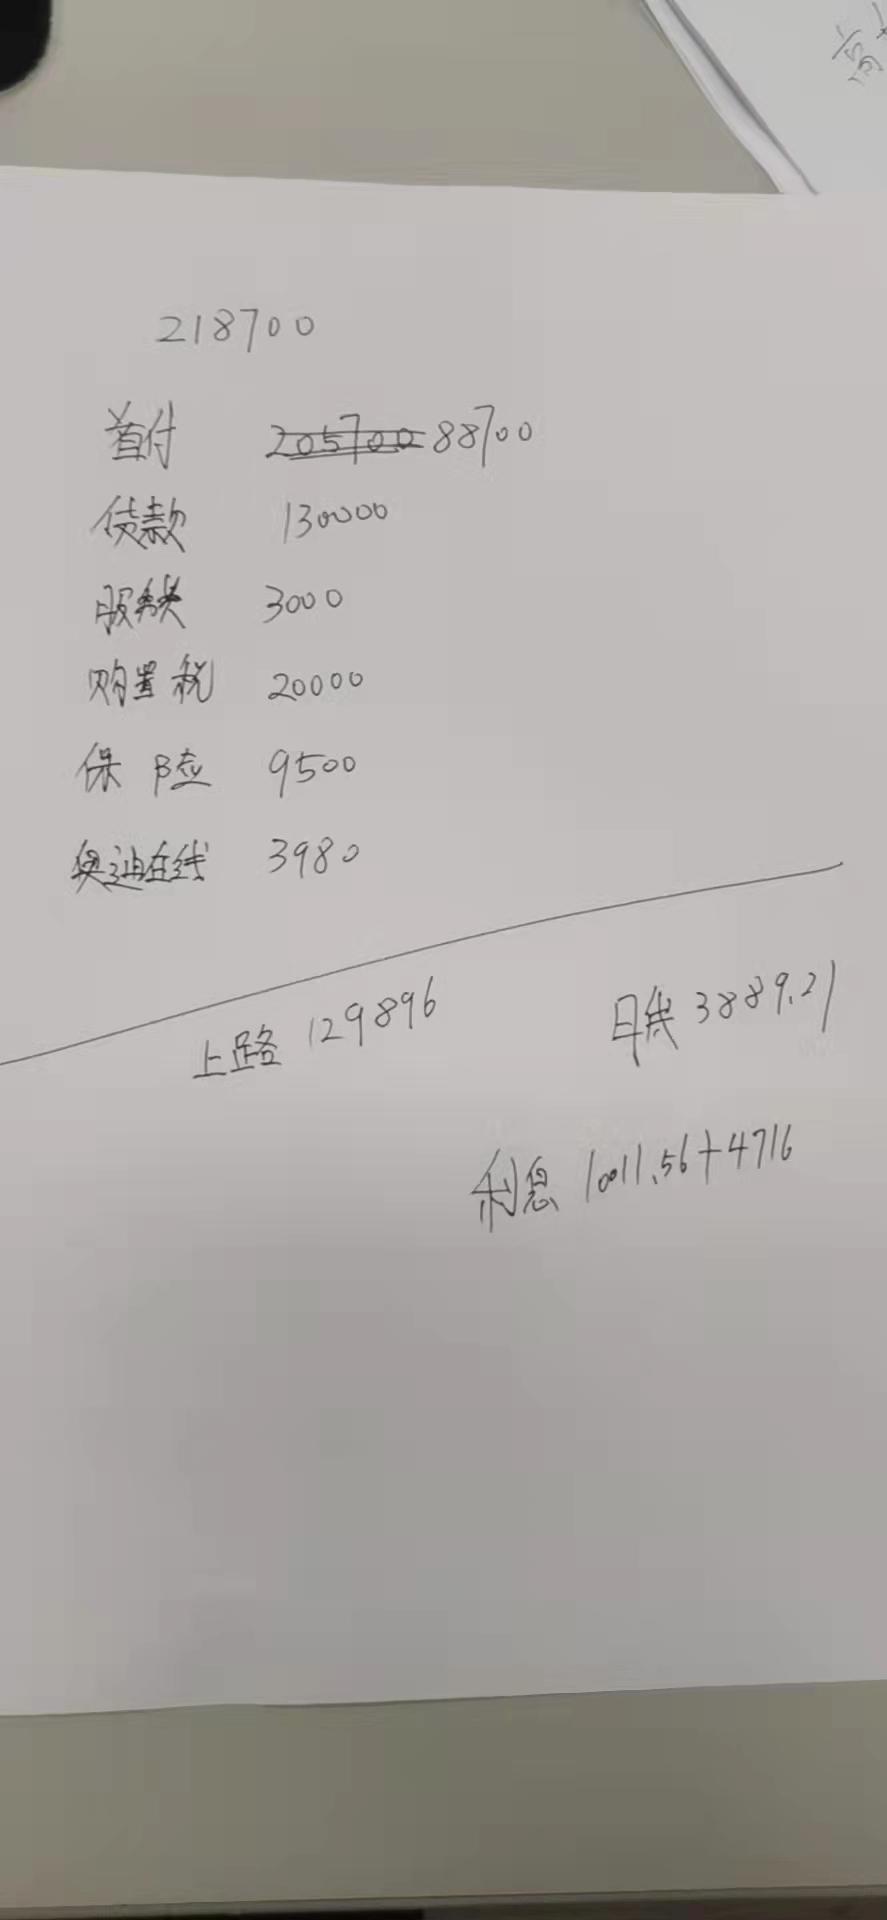 高
218700
首付 205700 88700
贷款 130000
服务费 3000
购置税 20000
保险 9500
奥迪在线 3980
上路 129896
月供 3889.21
利息 10011.56+4716